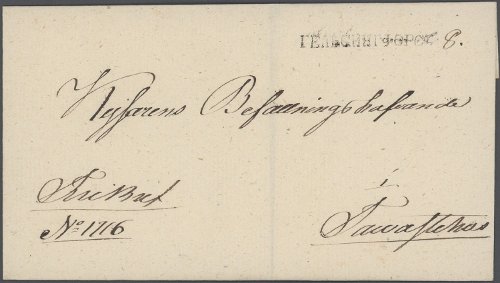 ГЕЛЬСИНГФОРСЪ 8.
Kejsarens Befallningshafvande
Fribref
i
No. 1716
Tavastehus